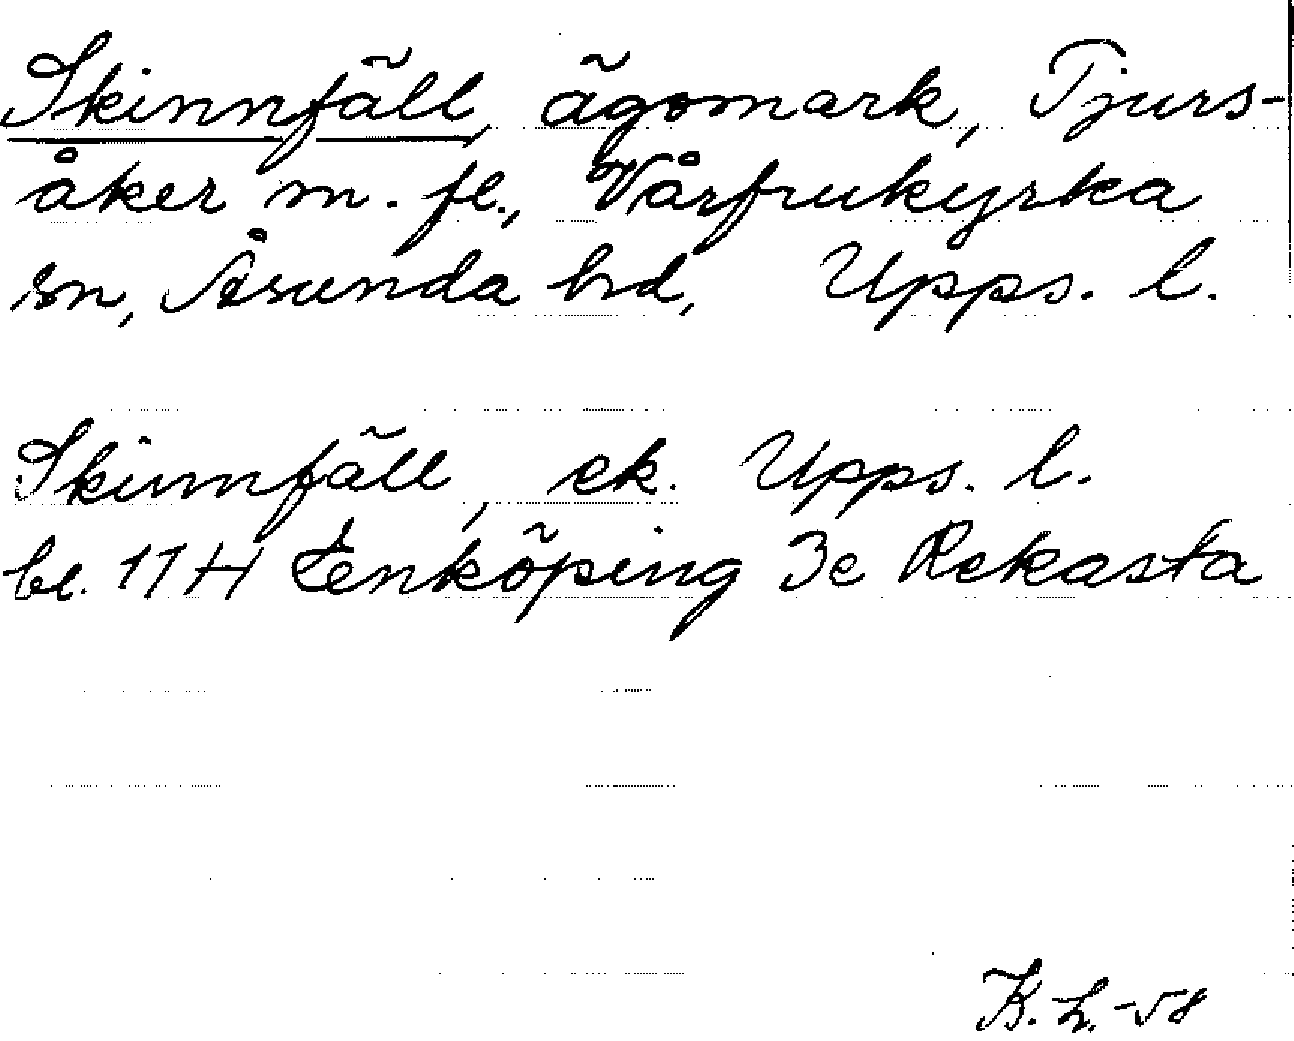 Skinnfäll, ägomark, Tjurs-
åker m. fl., Vårfrukyrka
sn, Åsunda hd, Upps. l.
Skinnfäll, ek. Upps. l.
bl. 17 H Enköping 3e Rekasta
K. L. -58